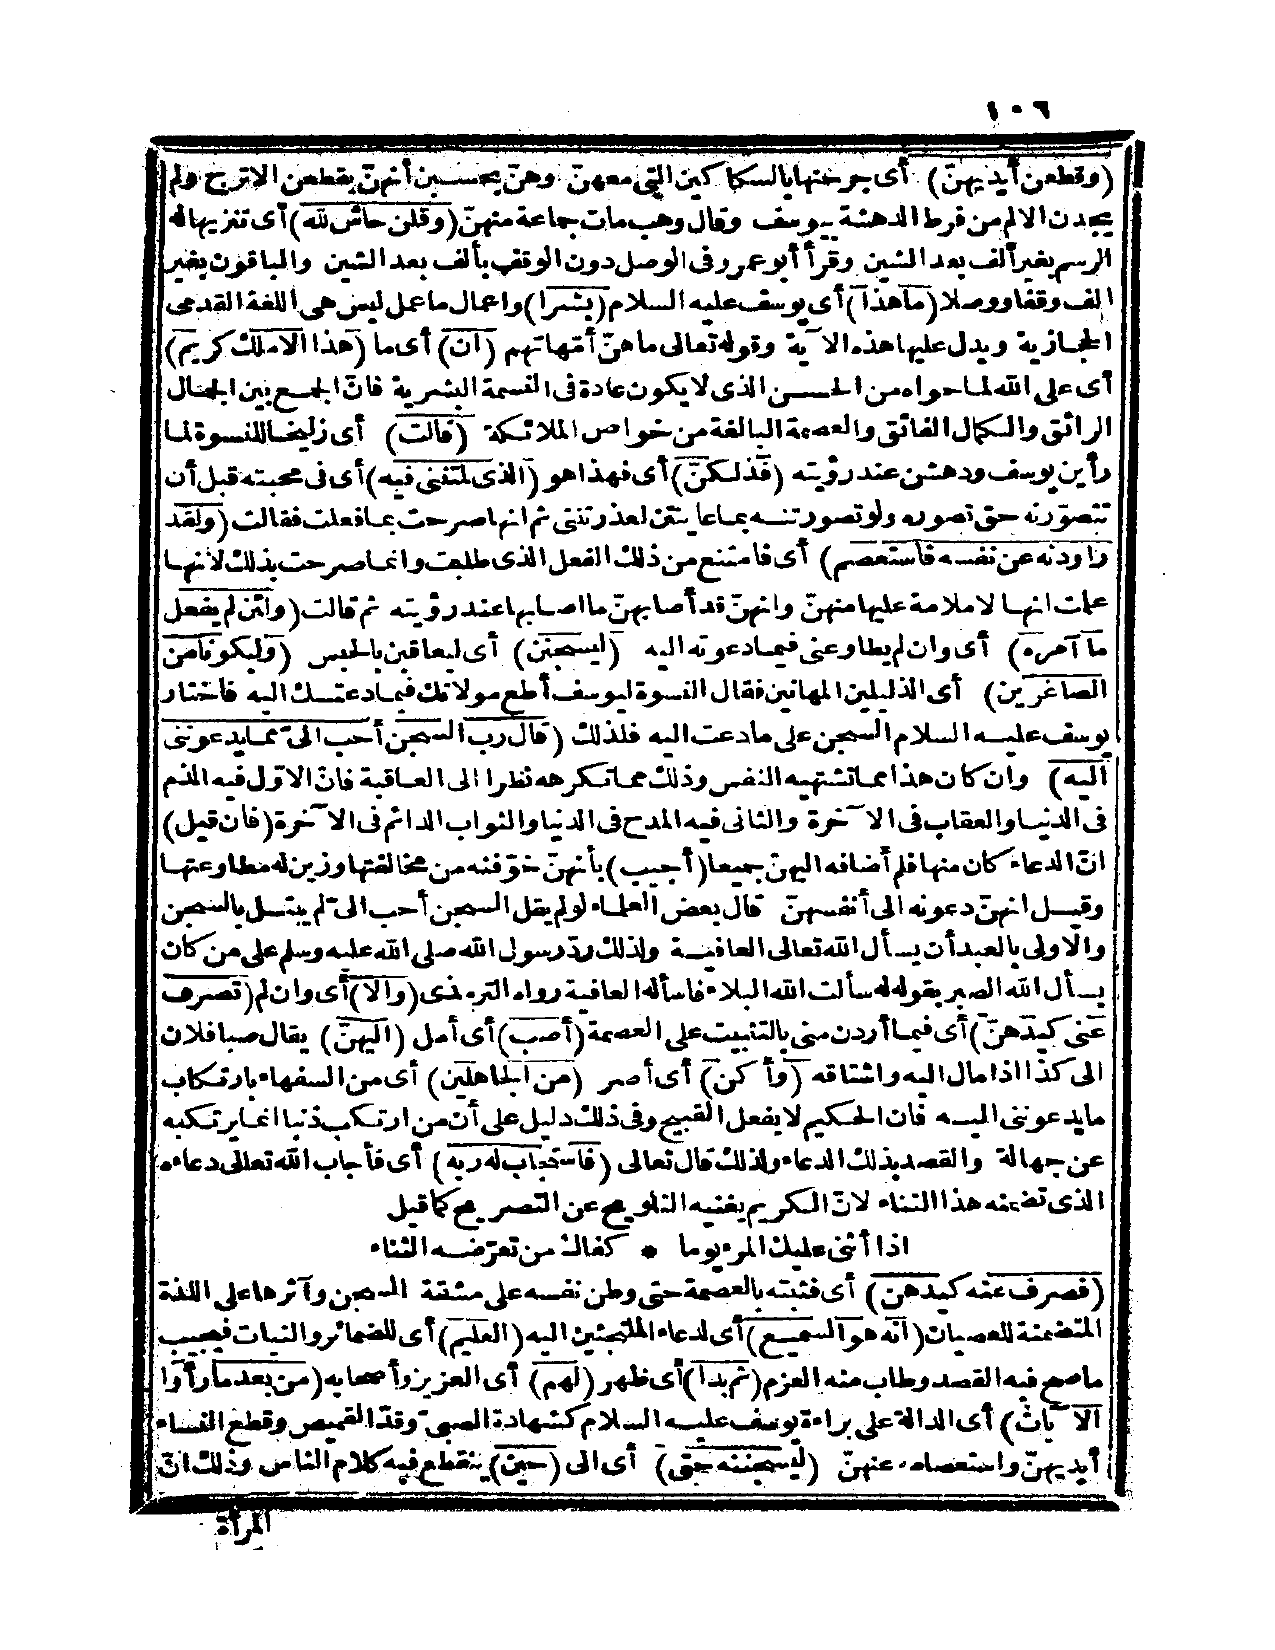 ١٠٦
(وقطعن أيديهنّ) أى جرحنها بالسكاكين التى معهنّ وهنّ يحسبن أنهنّ يقطعن الاترج ولم
يجدن الالم من فرط الدهشة بيوسف وقال وهب مات جماعة منهنّ (وقلن حاش لله) أى تنزيها له
الرسم بغير ألف بعد الشين وقرأ أبو عمرو فى الوصل دون الوقف بألف بعد الشين والباقون بغير
ألف وقفا ووصلا (ما هذا) أى يوسف عليه السلام (بشرا) واعمال ما عمل ليس هى اللغة القدمى
الحجازية ويدل عليها هذه الآية وقوله تعالى ما هنّ أمّهاتهم (ان) أى ما (هذا الا ملك كريم)
أى على الله لما حواه من الحسن الذى لا يكون عادة فى النسمة البشرية فانّ الجمع بين الجمال
الرائق والكمال الفائق والعصمة البالغة من خواص الملائكة (قالت) أى زليخا للنسوة لما
رأين يوسف ودهشن عند رؤيته (فذلكنّ) أى فهذا هو (الذى لمتننى فيه) أى فى محبته قبل أن
تتصوّرنه حق تصوره ولو تصورتنه بما عاينتن لعذرتننى ثم انها صرحت بما فعلت فقالت (ولقد
راودته عن نفسه فاستعصم) أى فامتنع من ذلك الفعل الذى طلبت وانما صرحت بذلك لانها
علمت انها لا ملامة عليها منهنّ وانهنّ قد أصابهنّ ما اصابها عند رؤيته ثم قالت (ولئن لم يفعل
ما آمره) أى وان لم يطاوعنى فيما دعوته اليه (ليسجنن) أى ليعاقبن بالحبس (وليكونا من
الصاغرين) أى الذليلين المهانين فقال النسوة ليوسف أطع مولاتك فيما دعتك اليه فاختار
يوسف عليه السلام السجن على ما دعت اليه فلذلك (قال رب السجن أحب الىّ مما يدعوننى
اليه) وان كان هذا مما تشتهيه النفس وذلك مما تكرهه نظرا الى العاقبة فانّ الاوّل فيه الذم
فى الدنيا والعقاب فى الآخرة والثانى فيه المدح فى الدنيا والثواب الدائم فى الآخرة (فان قيل)
انّ الدعاء كان منها فلم أضافه اليهنّ جميعا (أجيب) بأنهنّ خوّفنه من مخالفتها وزين له مطاوعتها
وقيل انهنّ دعونه الى أنفسهنّ قال بعض العلماء لو لم يقل السجن أحب الىّ لم يبتل بالسجن
والاولى بالعبد أن يسأل الله تعالى العافية ولذلك ردّ رسول الله صلى الله عليه وسلم على من كان
يسأل الله الصبر بقوله سألت الله البلاء فاسأله العافية رواه الترمذى (والا) أى وان لم (تصرف
عنى كيدهنّ) أى فيما أردن منى بالتثبيت على العصمة (أصب) أى أمل (اليهنّ) يقال صبا فلان
الى كذا اذا مال اليه واشتاقه (وأكن) أى أصر (من الجاهلين) أى من السفهاء بارتكاب
ما يدعوننى اليه فان الحكيم لا يفعل القبيح وفى ذلك دليل على أن من ارتكب ذنبا انما يرتكبه
عن جهالة والقصد بذلك الدعاء ولذلك قال تعالى (فاستجاب له ربه) أى فأجاب الله تعالى دعاءه
الذى تضمنه هذا الثناء لانّ الكريم يغنيه التلويح عن التصريح كما قيل
اذا أثنى عليك المرء يوما * كفاك من تعرّضه الثناء
(فصرف عنه كيدهن) أى فثبته بالعصمة حتى وطن نفسه على مشقة السجن وآثرها على اللذة
المتضمنة للعصيان (انه هو السميع) أى لدعاء الملتجئين اليه (العليم) أى للضمائر والنيات فيجيب
ما صح فيه القصد وطاب منه العزم (ثم بدا) أى ظهر (لهم) أى العزيز وأصحابه (من بعد ما رأوا
الآيات) أى الدالة على براءة يوسف عليه السلام كشهادة الصبىّ وقدّ القميص وقطع النساء
أيديهنّ واستعصامه عنهنّ (ليسجننه حتى) أى الى (حين) ينقطع فيه كلام الناس وذلك انّ
المرأة